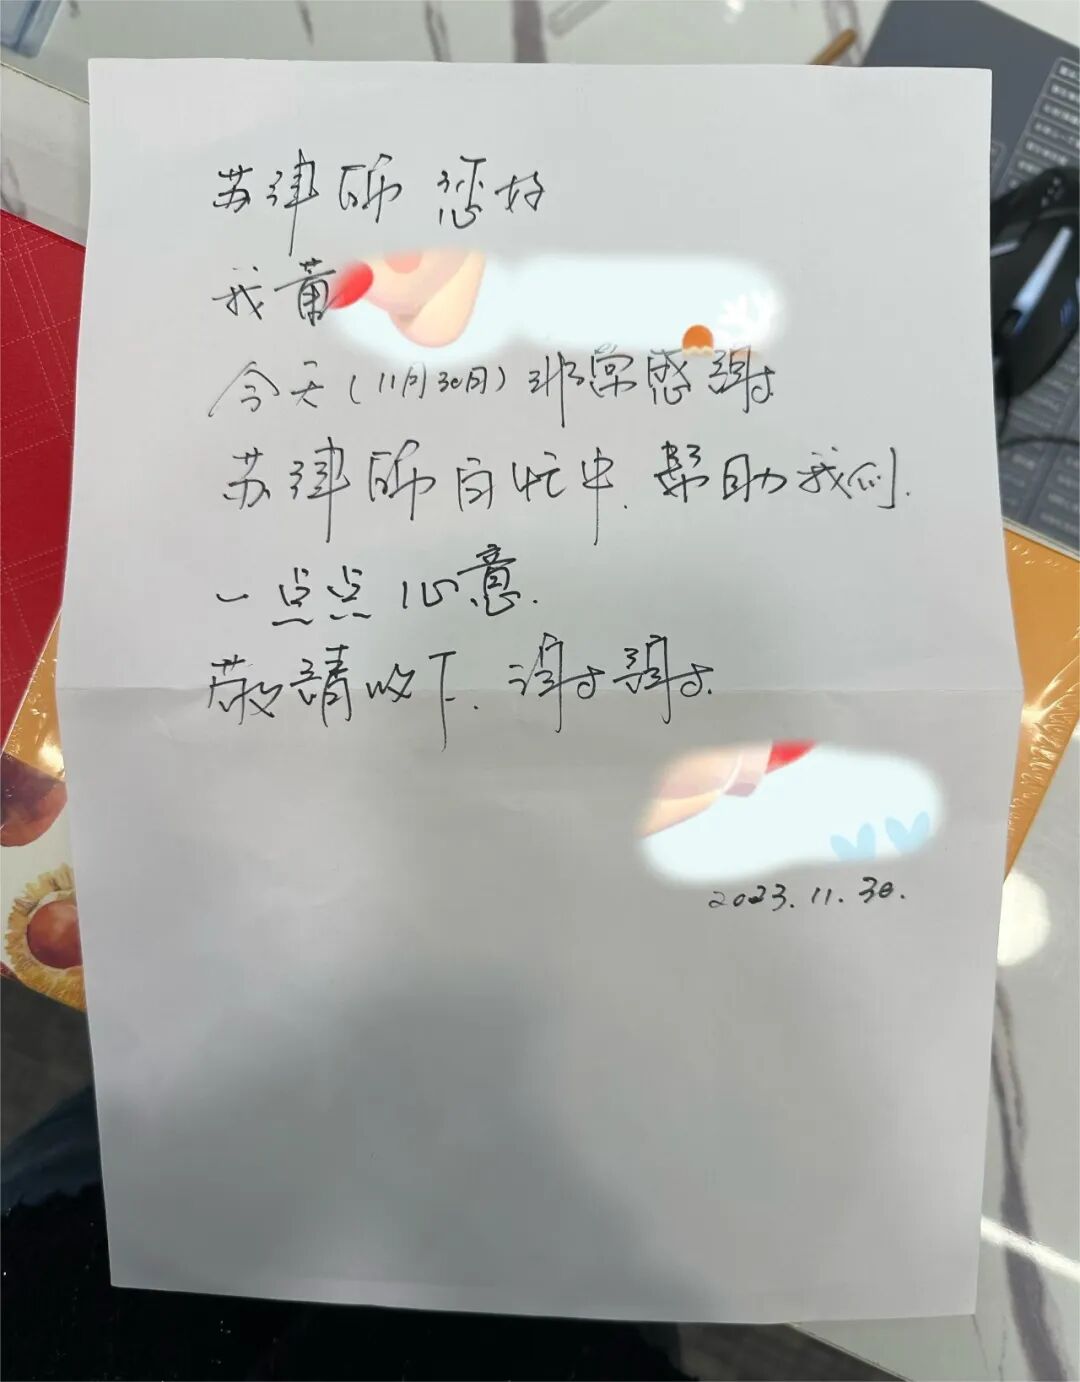 苏律师 您好
我黄
今天(11月30日)非常感谢
苏律师百忙中.帮助我们.
一点点心意.
敬请收下.谢谢.
2023.11.30.